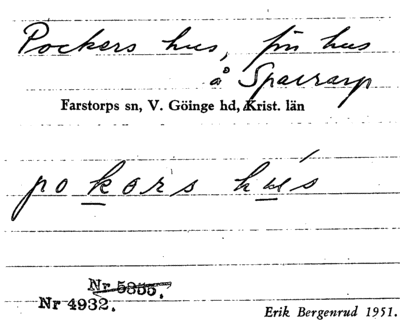 Pockers hus, fm hus
å Sparrarp
Farstorps sn, V. Göinge hd, Krist. län
pokars hus
Nr 5355.
Nr 4932.
Erik Bergenrud 1951.